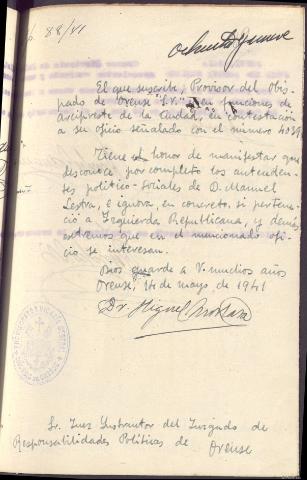 88/41
Ochenta y nueve
El que suscribe, Provisor del Obis-
pado de Orense S.V. en funciones de
arcipreste de la Ciudad, en contestación
a su oficio señalado con el número 4039
Tiene el honor de manifestar que
desconoce por completo los anteceden-
tes político-sociales de D. Manuel
Lestra, e ignora, en concreto, si pertene-
ció a Izquierda Republicana, y demás
extremos que en el mencionado ofi-
cio se interesan.
Dios guarde a V. muchos años
Orense, 14 de mayo, de 1941
Dr. Miguel
Sr. Juez Instructor del Juzgado de
Responsabilidades Políticas de Orense